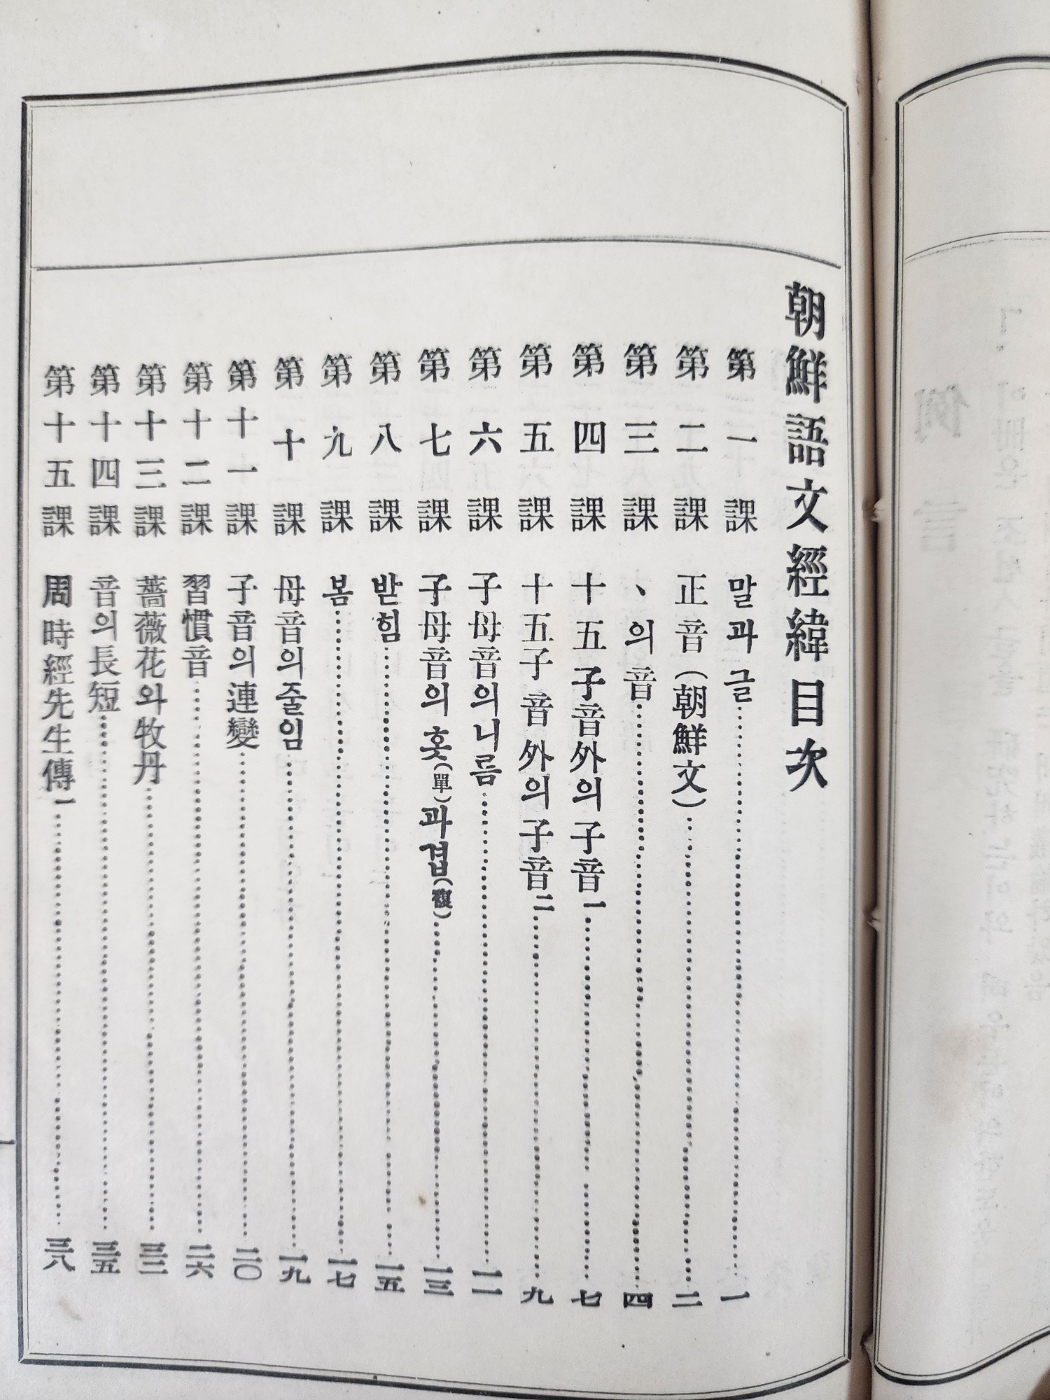 朝鮮語文經緯目次
第一課 말과글 一
第二課 正音(朝鮮文) 二
第三課 、의音 四
第四課 十五子音外의子音一 七
第五課 十五子音外의子音二 九
第六課 子母音의니름 一一
第七課 子母音의홋(單)과겹(複) 一三
第八課 받힘 一五
第九課 봄 一七
第十課 母音의줄임 一九
第十一課 子音의連變 二〇
第十二課 習慣音 二六
第十三課 薔薇花와牧丹 三三
第十四課 音의長短 三五
第十五課 周時經先生傳一 三八